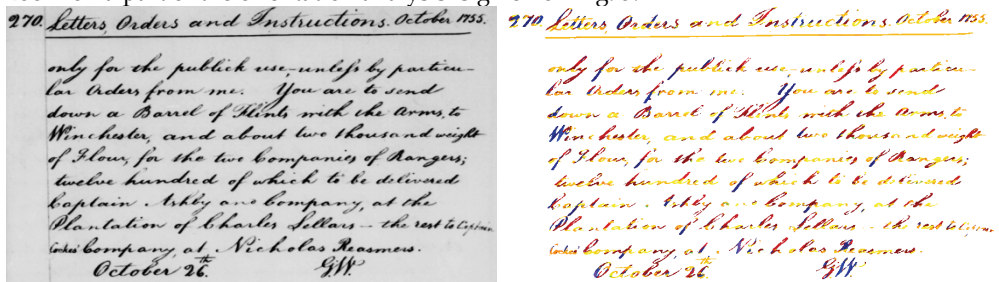 270. Letters, Orders and Instructions. October 1755.
only for the publick use, unless by particu-
lar Orders from me. You are to send
down a Barrel of Flints with the Arms, to
Winchester, and about two thousand weight
of Flour, for the two Companies of Rangers;
twelve hundred of which to be delivered
Captain Ashby and Company, at the
Plantation of Charles Sellars - the rest to Captain
Cockes Company, at Nicholas Reasmers.
October 26th. G.W.
270. Letters, Orders and Instructions. October 1755.
only for the publick use, unless by particu-
lar Orders from me. You are to send
down a Barrel of Flints with the Arms, to
Winchester, and about two thousand weight
of Flour, for the two Companies of Rangers;
twelve hundred of which to be delivered
Captain Ashby and Company, at the
Plantation of Charles Sellars - the rest to Captain
Cockes Company, at Nicholas Reasmers.
October 26th. G.W.